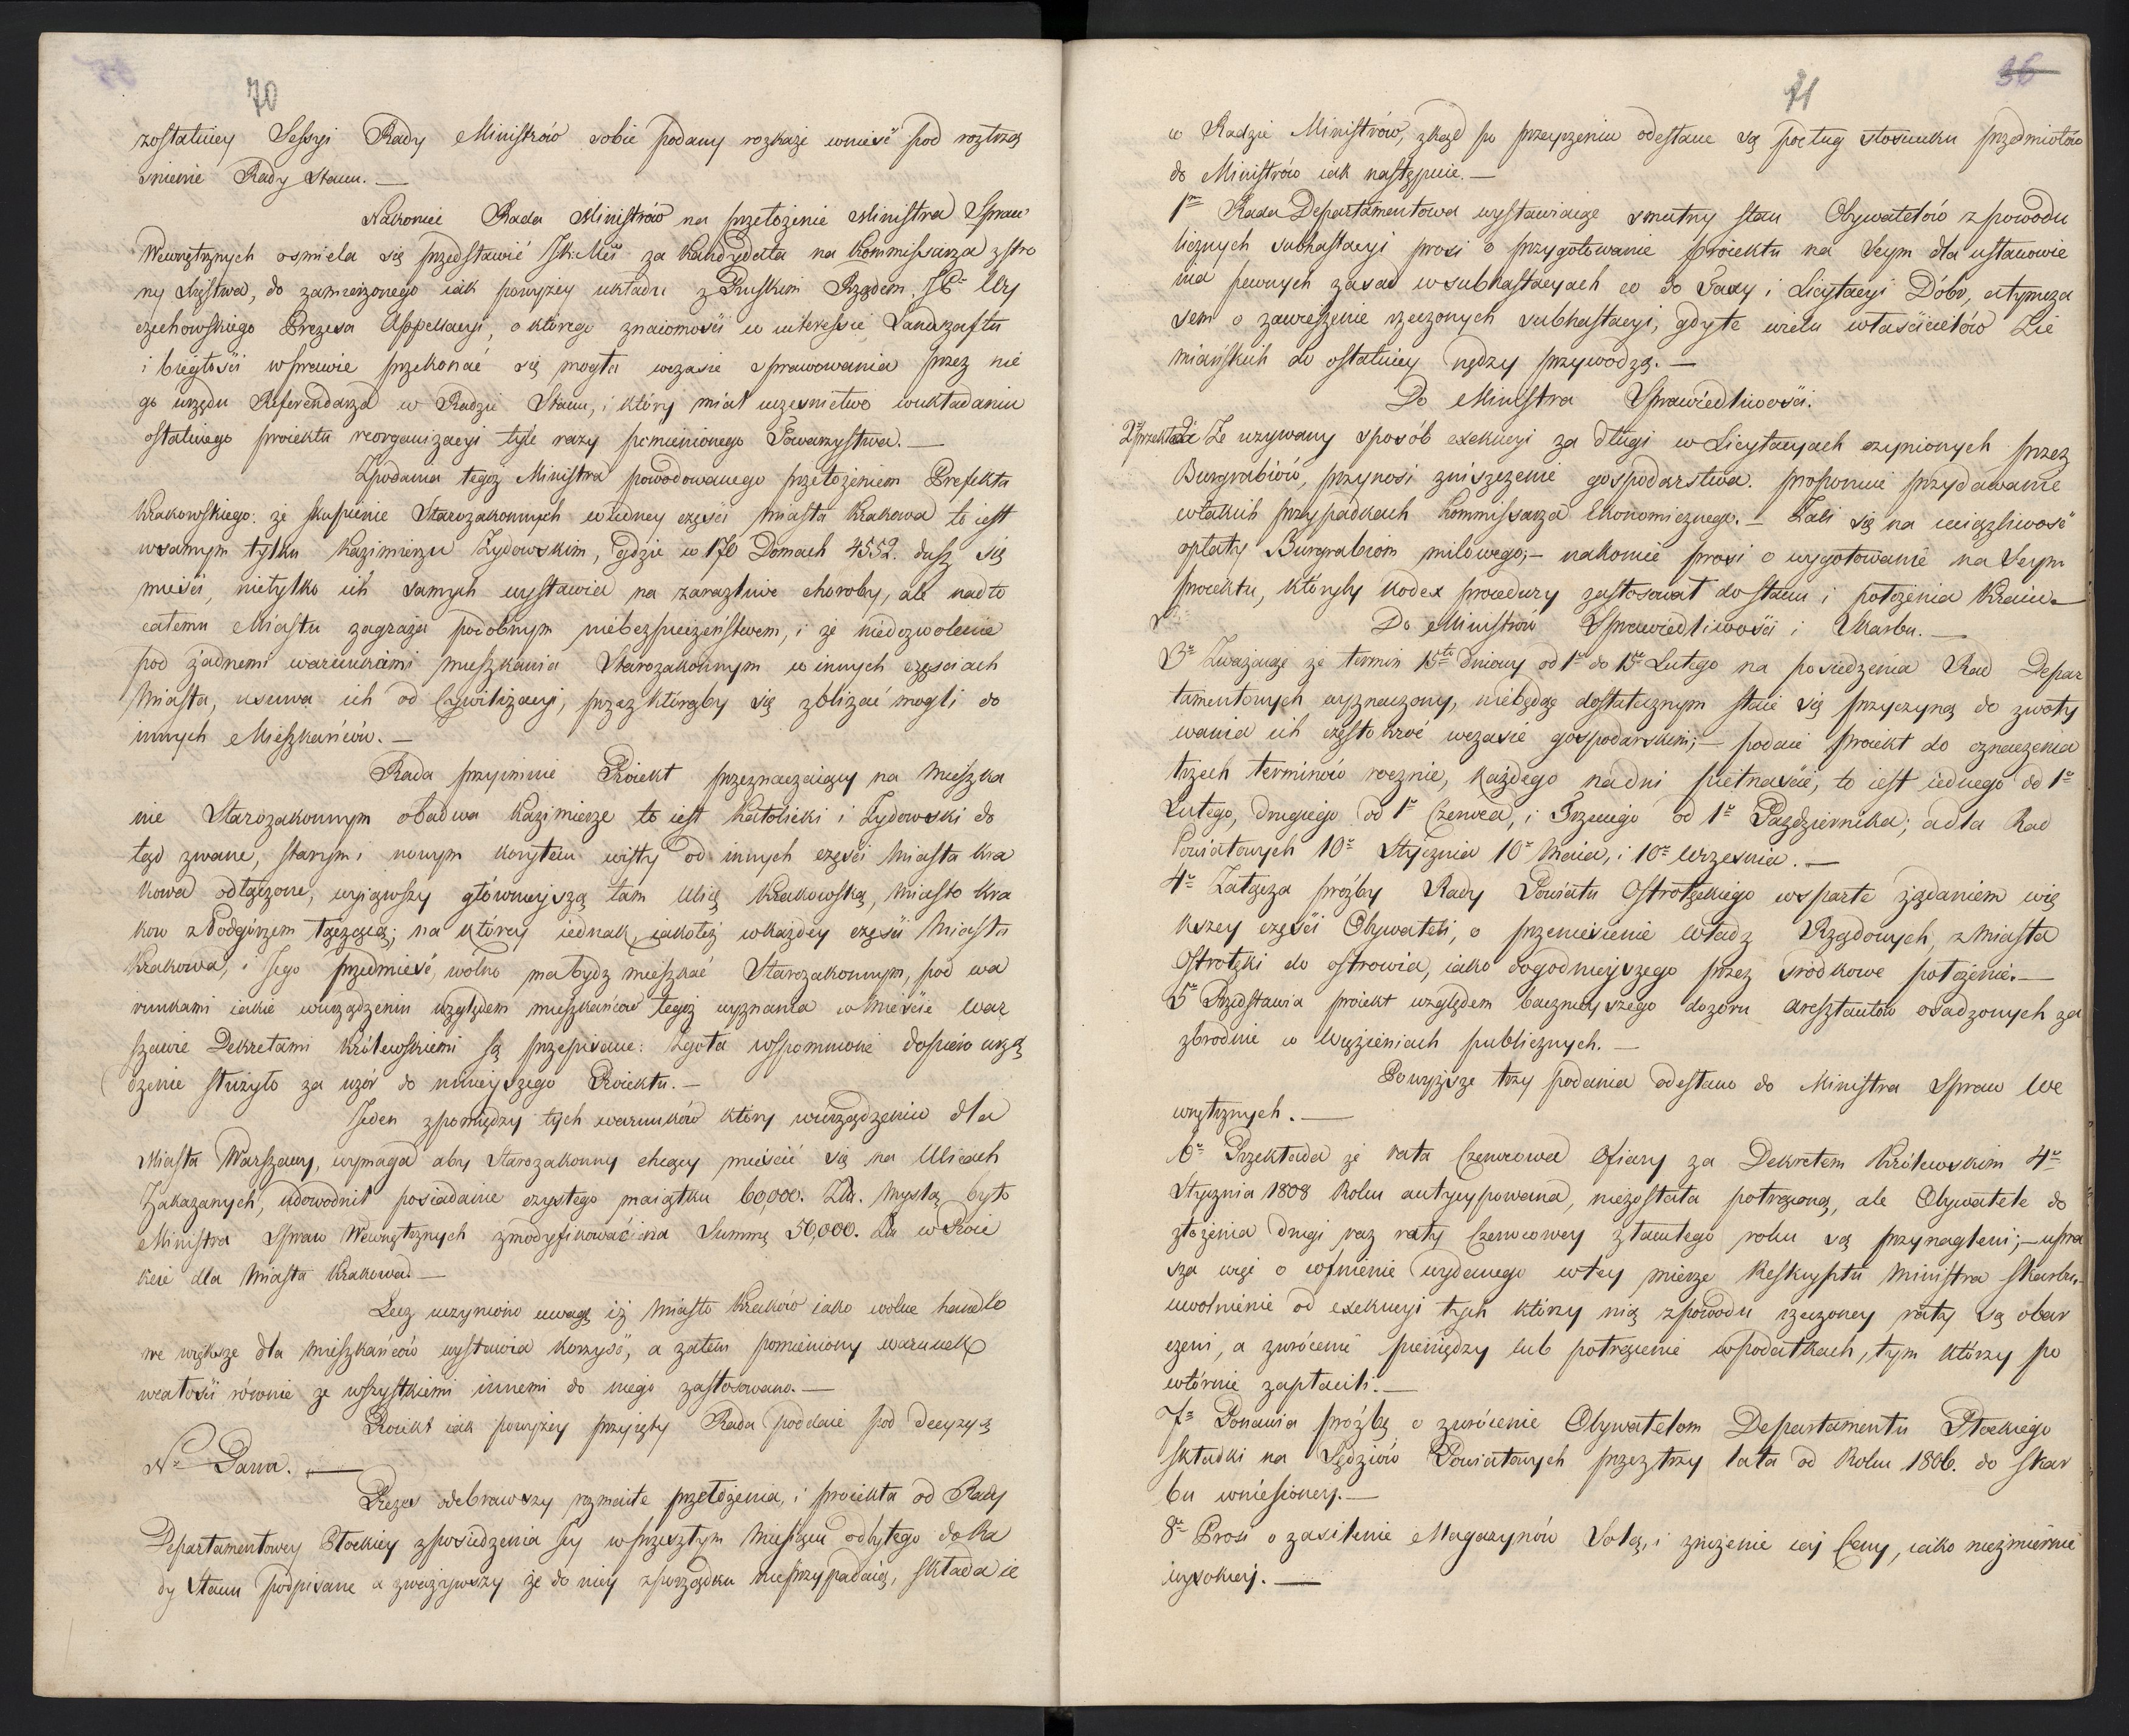 70
zostatniey Sessyi Rady Ministrów sobie podany rozkaże wnieść pod roztrzą
śnienie Rady Stanu. —
Nakoniec Rada Ministrów na przełożenie Ministra Spraw
Wewnętrznych ośmiela się przedstawić za Kandydata na Kommissarza z stro
ny Xięstwa, do zamierzonego iak powyżey układu z Pruskim Rządem, Wy
czechowskiego Prezesa Appellacyi, o którego znaiomości w interessie Landszaftu
i biegłości w prawie przekonać się mogła wczasie sprawowania przez nie
go urzędu Referendarza w Radzie Stanu, i który miał uczesnictwo w układaniu
ostatniego proiektu reorganizacyi tyle razy pomienionego Towarzystwa. —
Zpodania tegoż Ministra powodowanego przełożeniem Prefekta
Krakowskiego: że skupienie Starozakonnych w iedney części Miasta Krakowa to iest
wsamym tylko Kazimierzu Żydowskim, gdzie w 170 Domach 4552. dusz się
mieści, nietylko ich samych wystawia na zaraźliwe choroby, ale nadto
całemu Miastu zagraża podobnym niebezpieczeństwem, i że niedozwolenie
pod żadnemi warunkami mieszkania Starozakonnym w innych częściach
Miasta, usuwa ich od Cywilizacyi, przez którąby się zbliżać mogli do
innych Mieszkańców. —
Rada przyimuie Proiekt przeznaczaiący na mieszka
nie Starozakonnym obadwa Kazimierze to iest Katolicki i Żydowski do
tąd zwane, starym i nowym korytem wisły od innych części Miasta Kra
kowa odłączone, wyiąwszy główneyszą tam Ulicę Krakowską, Miasto Kra
kow z Podgórzem łączącą; na którey iednak, iakoteż wkażdey części Miasta
Krakowa, i Jego przedmieść, wolno ma bydź mieszkać Starozakonnym, pod wa
runkami iakie wurządzeniu względem mieszkańców tegoż wyznania w Mieście War
szawie Dekretami Królewskiemi są przepisane: Zgoła wspomnione dopiero urzą
dzenie służyło za wzór do ninieyszego Proiektu. —
Jeden zpomiędzy tych warunków który wurządzeniu dla
Miasta Warszawy, wymaga aby Starozakonny chcący mieścić się na Ulicach
Zakazanych, udowodnił posiadanie czystego maiątku 60,000. Zł. Myslą było
Ministra Spraw Wewnętrznych zmodyfikować na Summę 50,000. Zł w Proie
kcie dla Miasta Krakowa. —
Lecz uczyniono uwagę iż Miasto Kraków iako wolne handlo
we większe dla mieszkańców wystawia korzyści, a zatem pomieniony warunek
wcałości równie ze wszystkiemi innemi do niego zastosowano. —
Proiekt iak powyżey przyięty Rada poddaie pod Decyzyą
N. Pana. —
Prezes odebrawszy rozmaite przełożenia, i proiekta od Rady
Departamentowey Płockiey zposiedzenia Jey w przeszłym Miesiącu odbytego do Ra
dy Stanu podpisane a zważywszy że do niey zporządku nieprzypadaią, składa ie
36
71
w Radzie Ministrów, zkąd po przeyrzeniu odesłane są podług stosunku przedmiotów
do Ministrów iak następuie. —
1o Rada Departamentowa wystawiaiąc smutny stan Obywatelów z powodu
licznych subhastacyi prosi o przygotowanie proiektu na Seym dla ustanowie
nia pewnych zasad w subhastacyach co do Taxy i Licytacyi Dóbr, a tymcza
sem o zawieszenie rzeczonych subhastacyi, gdy te wielu właścicielów Zie
miańskich do ostatniey nędzy przywodzą. —
Do Ministra Sprawiedliwości.
2o przekłada Że używany sposób exekucyi za długi w Licytacyach czynionych przez
Burgrabiów, przynosi zniszczenie gospodarstwa. proponuie przydawanie
w takich przypadkach Kommissarza Ekonomicznego. — Żali się na uciążliwość
opłaty Burgrabiom milowego; — nakoniec prosi o wygotowanie na Seym
proiektu, któryby Kodex procedury zastosował do stanu i położenia Kraiu. —
Do Ministrów Sprawiedliwości i Skarbu. —
3o Zważaiąc że termin 15to dniowy od 1o do 15o Lutego na posiedzenia Rad Depar
tamentowych wyznaczony, niebędąc dostatecznym staie się przyczyną do zwoły
wania ich częstokroć wczasie gospodarskim; — podaie proiekt do oznaczenia
trzech terminów rocznie, każdego na dni pietnaście, to iest iednego od 1o
Lutego, drugiego od 1o Czerwca, i Trzeciego od 1o Października; a dla Rad
Powiatowych 10o Stycznia 10o Maia, i 10o Września. —
4o Załącza proźby Rady Powiatu Ostrołęckiego wsparte żądaniem wię
kszey części Obywateli, o przeniesienie Władz Rządowych, z Miasta
Ostrołęki do ostrowia, iako dogodnieyszego przez środkowe położenie. —
5o Przedstawia proiekt względem bacznieyszego dozoru aresztantów osadzonych za
zbrodnie w Więzieniach publicznych. —
Powyższe trzy podania odesłano do Ministra Spraw We
wnętrznych. —
6o Przekłada że rata Czerwcowa Ofiary za Dekretem Królewskim 4o
Stycznia 1808 Roku antycypowana, niezostała potrąconą, ale Obywatele do
złożenia drugi raz raty Czerwcowey ztamtego roku są przynagleni; — upra
sza więc o cofnienie wydanego w tey mierze Reskryptu Ministra Skarbu,
uwolnienie od exekucyi tych którzy nią zpowodu rzeczoney raty są obar
czeni, a zwrócenie pieniędzy lub potrącenie w podatkach, tym którzy po
wtórnie zapłacili. —
7o Ponawia proźbę o zwrócenie Obywatelom Departamentu Płockiego
składki na Sędziów Powiatowych przez trzy lata od Roku 1806. do Skar
bu wniesioney. —
8o Prosi o zasilenie Magazynów Solą, i zniżenie iey Ceny, iako niezmiernie
wysokiey. —